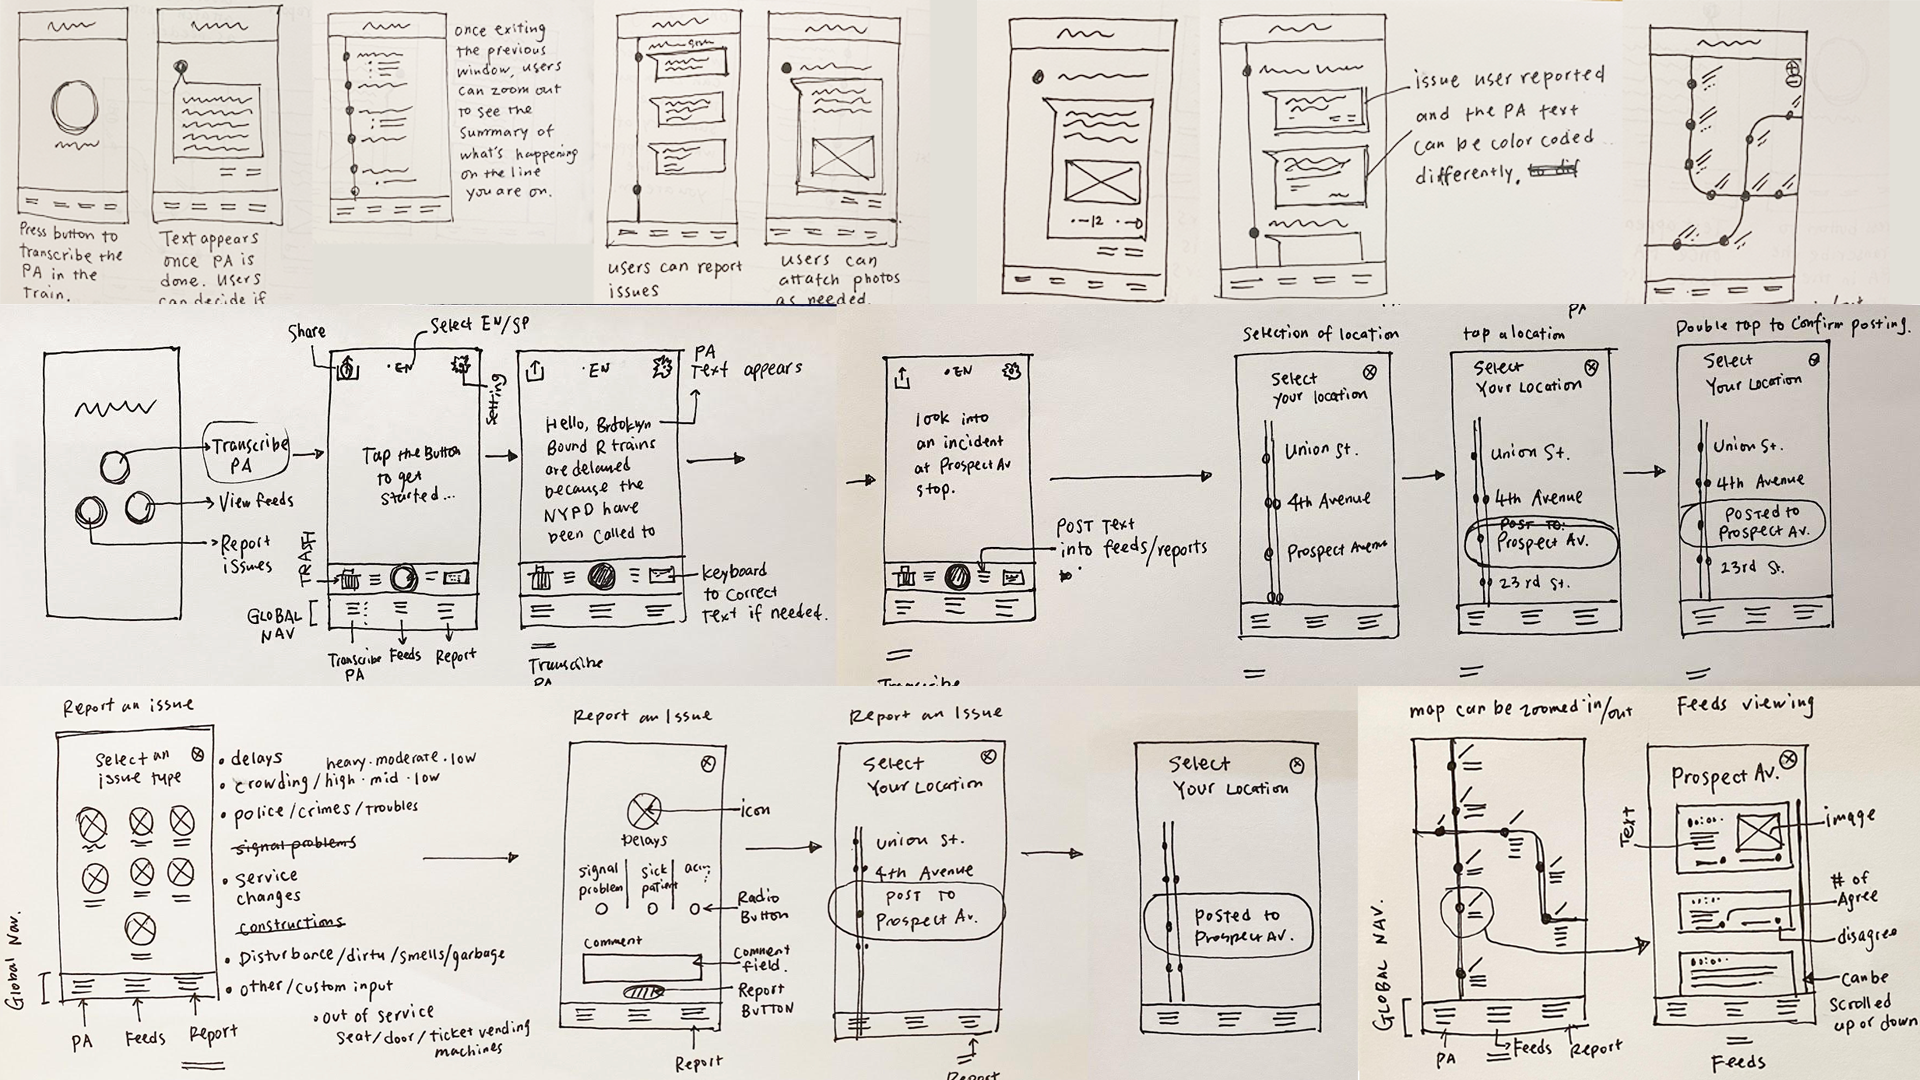 Press button to
transcribe the
PA in the
train.
Text appears
once PA is
done. Users
can decide if
once exiting
the previous
window, users
can zoom out
to see the
summary of
what's happening
on the line
you are on.
users can report
issues
users can
attatch photos
as needed.
issue user reported
and the PA text
can be color coded
differently.
Share
Select EN/SP
Transcribe
PA
View feeds
Report
issues
EN
Setting
Tap the Button
to get
started...
TRASH
GLOBAL
NAV
Transcribe
PA
Feeds
Report
EN
PA
Text appears
Hello, Brooklyn
Bound R trains
are delayed
because the
NYPD have
been called to
keyboard
to correct
Text if needed.
Transcribe
PA
EN
look into
an incident
at Prospect Av
stop.
POST Text
into feeds/reports
Transcribe
Selection of location
Select
your location
Union St.
4th Avenue
Prospect Avenue
PA
tap a location
Select
Your Location
Union St.
4th Avenue
POST TO:
Prospect Av.
23rd St.
Double tap to confirm posting.
Select
Your Location
Union St.
4th Avenue
POSTED TO
Prospect Av.
23rd St.
Report an issue
Select an
issue type
• delays heavy·moderate·low
• crowding/high·mid·low
• police/crimes/troubles
signal problems
• Service
changes
constructions
• Disturbance/dirty/smells/garbage
• other/custom input
• out of service
Seat/door/ticket vending
machines
Global Nav.
PA
Feeds
Report
Report an Issue
icon
Delays
signal
problem
sick
patient
Radio
Button
Comment
Comment
field.
Report
BUTTON
Report
Report an Issue
Select
Your Location
Union St.
4th Avenue
POST TO
Prospect Av.
Report
Select
Your Location
Posted to
Prospect Av.
map can be zoomed in/out
GLOBAL NAV.
PA
Feeds
Report
Feeds viewing
Prospect Av.
Text
image
# of
Agree
disagree
can be
Scrolled
up or down
Feeds